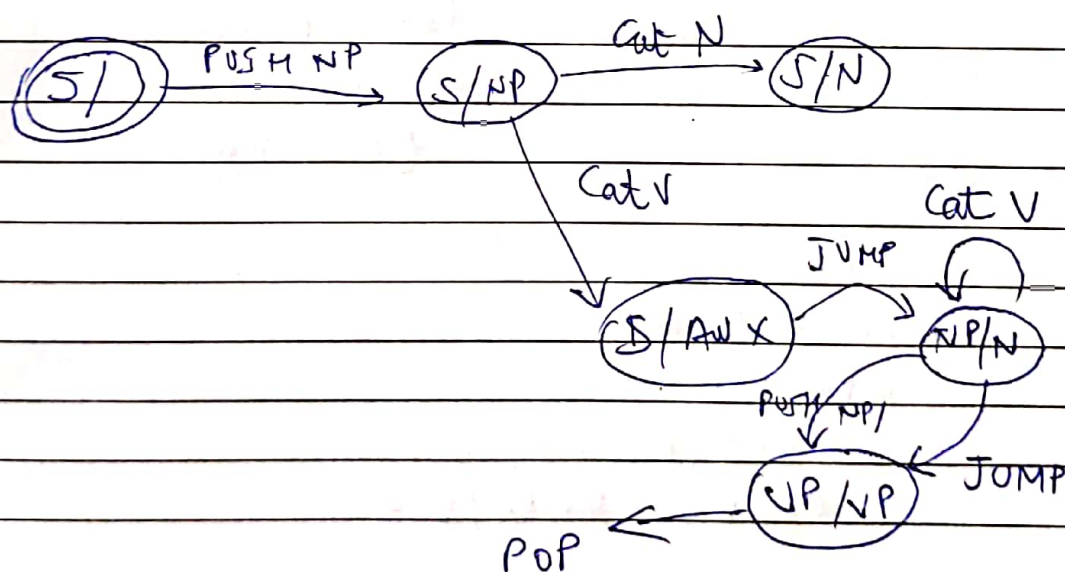 S/ PUSH NP S/NP Cat N S/N
Cat V Cat V
JUMP
S/AUX NP/N
PUSH NP/
JUMP
VP/VP
POP